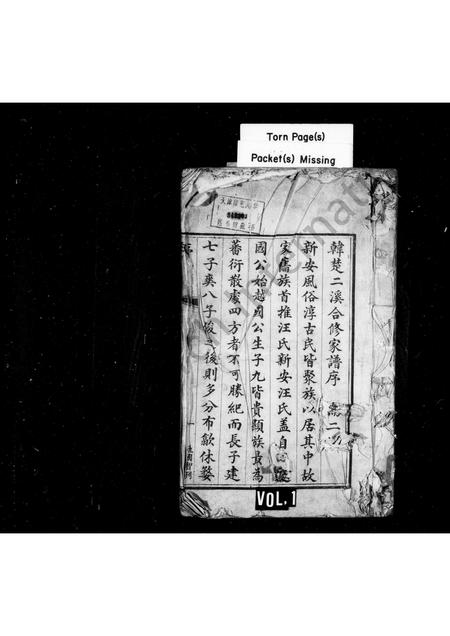 Torn Page(s)
Packet(s) Missing
韓楚二溪合修家譜序
新安風俗淳古民皆聚族以居其中故
家舊族首推汪氏新安汪氏蓋自
國公始越國公生子九皆貴顯族最為
蕃衍散處四方者不可勝紀而長子建
七子爽八子俊之後則多分布歙休婺
VOL.1